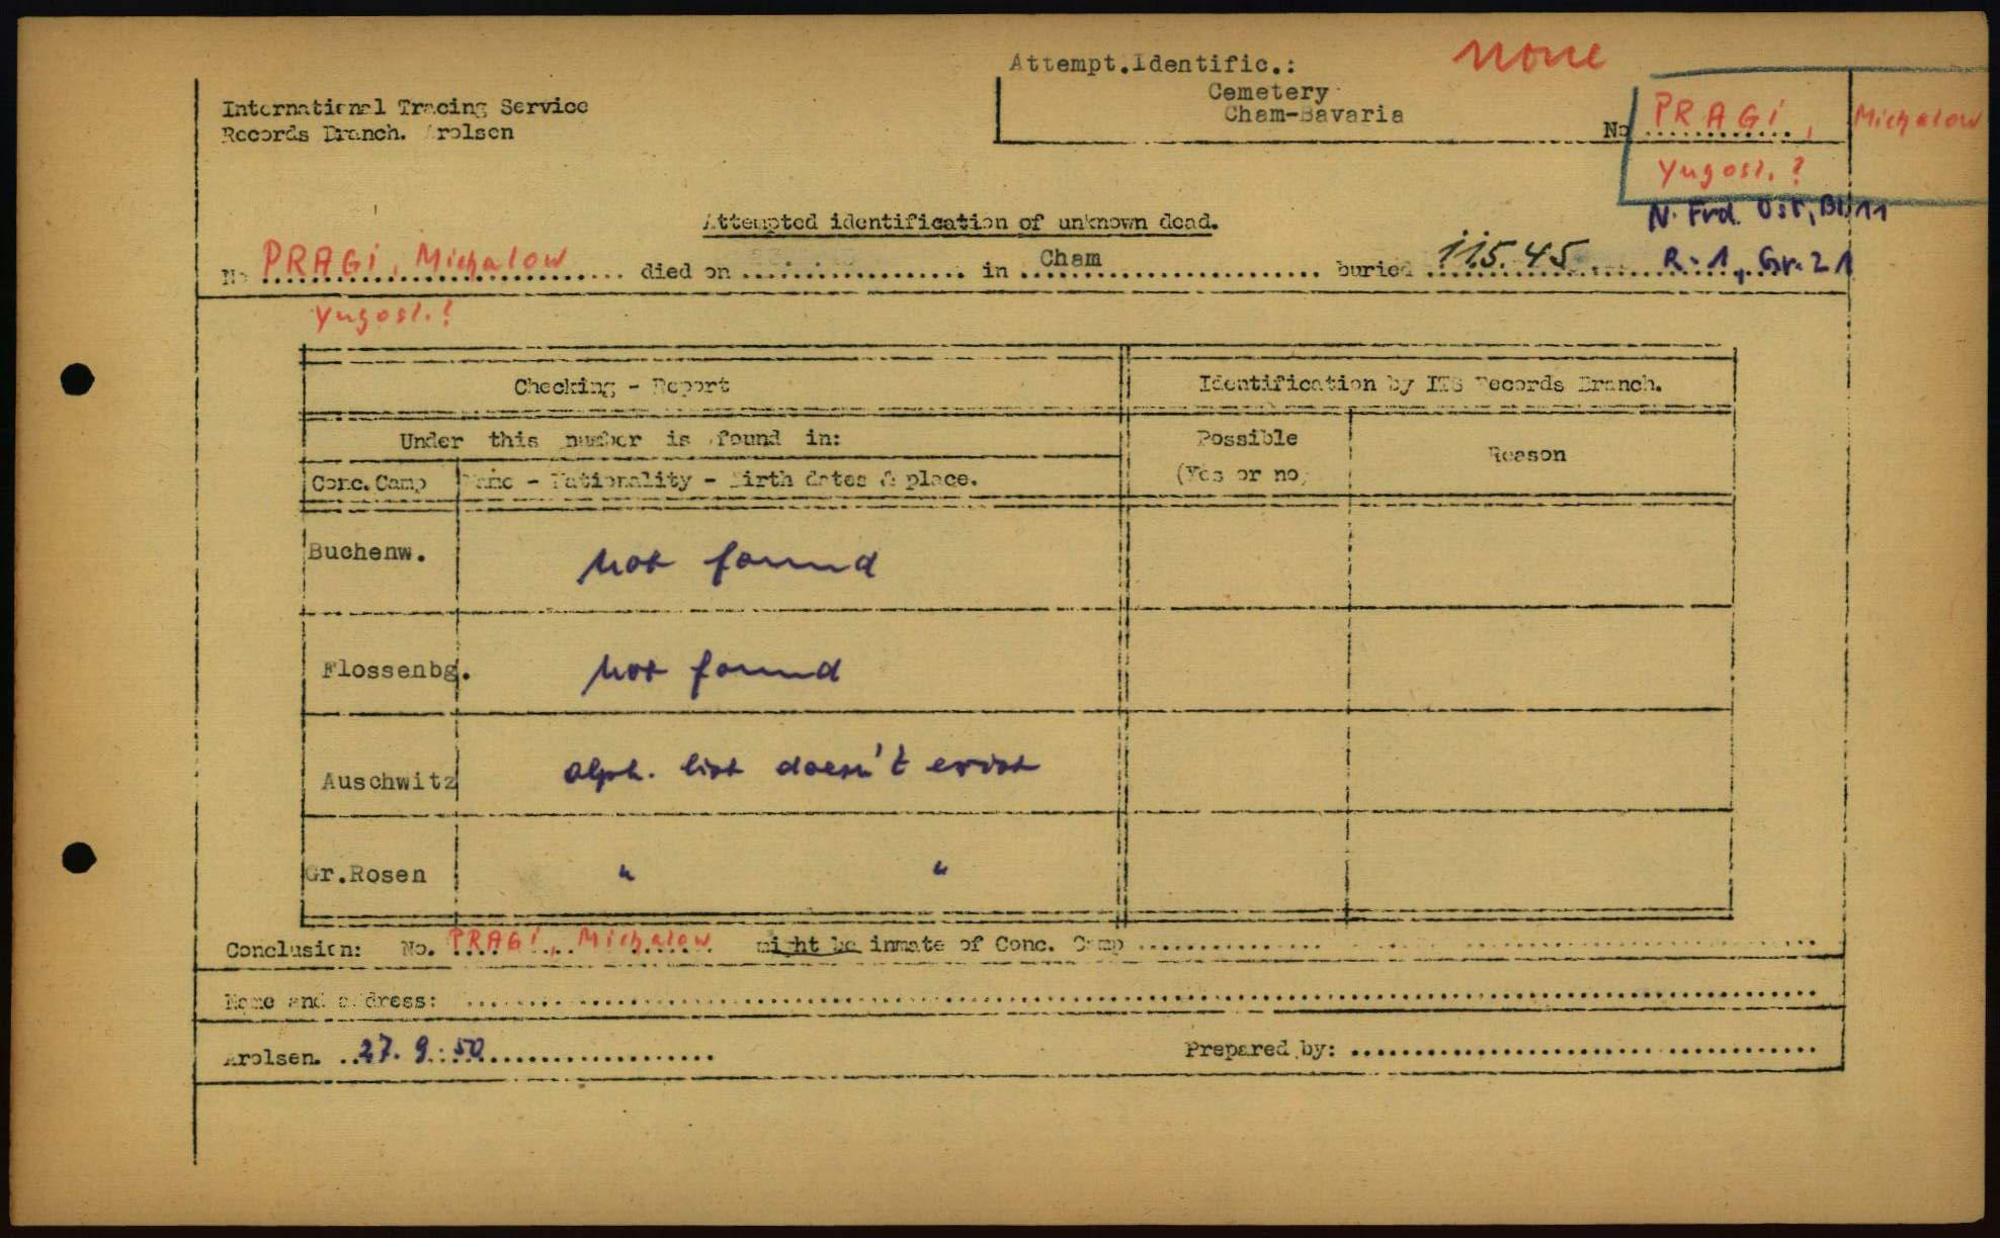 Attempt.Identific.: none
International Tracing Service
Records Branch. Arolsen
Cemetery
Cham-Bavaria
No PRAGI, Michalow
Yugosl. ?
Attempted identification of unknown dead.
N. Frd. Ost, Bl. 11
No PRAGI, Michalow died on in Cham buried 11.5.45 R. 1, Gr. 21
Yugosl. ?
Checking - Report Identification by ITS Records Branch.
Under this number is found in: Possible Reason
Conc.Camp Name - Nationality - Birth dates & place. (Yes or no)
Buchenw. not found
Flossenbg. not found
Auschwitz alph. list doesn't exist
Gr.Rosen " "
Conclusion: No. PRAGI, Michalow might be inmate of Conc. Camp
Name and address:
Arolsen. 27. 9. 50 Prepared by: